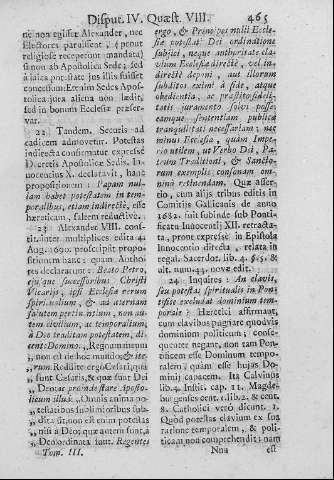 Disput. IV. Quæst. VIII. 465
ne non egisset Alexander, nec
Electores paruissent, (penes
religiose receperunt mandata)
sinon ab Apostolica Sede; sed
à laica potestate jus illis fuisset
concessum: Etenim Sedes Apos-
tolica jura aliena non lædit,
sed in bonum Ecclesiæ præser-
vat.
22 Tandem. Securis ad
radicem admovetur. Potestas
indirecta confirmatur expresse
Decretis Apostolicæ Sedis. In-
nocentius X. declaravit, hanc
propositionem: Papam nul-
lam habet potestatem in tem-
poralibus, etiam indirectè, esse
hæreticam, saltem reductive.
23 Alexander VIII. conf-
tituit. inter multiplices edita 4.
Aug. 1690. proscripsit propo-
sitionem hanc: quam Autho-
res declararunt: Beato Petro,
ejusque successoribus Christi
Vicariis, ipsi Ecclesiæ rerum
spiritualium, & ad æternam
salutem pertinentium, non au-
tem civilium, ac temporalium,
à Deo traditam potestatem, di-
cente Domino: ,, Regnum meum
,, non est de hoc mundo; & ite-
rum. Reddite ergo Cæsari, quæ
,, sunt Cæsaris, & quæ sunt Dei
,, Deo: ac proinde stare Aposto-
licum illud: ,, Omnis anima po-
,, testatibus sublimioribus sub-
,, dita sit; non est enim potestas
,, nisi à Deo; quæ autem sunt, à
,, Deo ordinata sunt. Regentes
Tom. III.
ergo, & Principes nulli Eccle-
siæ potestati Dei ordinatione
subjici, neque authoritate cla-
vium Ecclesiæ directè, vel in-
directè deponi, aut illorum
subditos eximi à fide, atque
obedientia, ac præstito fideli-
tatis juramento solvi posse:
eamque sententiam publicæ
tranquilitati necessariam; nec
minus Ecclesiæ, quàm Impe-
rio utilem, ut Verbo Dei, Pa-
trum Traditioni, & Sancto-
rum exemplis consonam om-
nino retinendam. Quæ asser-
tio, cum aliis tribus editis in
Comitiis Gallicanis de anno
1682. fuit subinde sub Ponti-
ficatu Innocentij XII. retracta-
ta, prout expressè in Epistola
Innocentio directa, relata in
regal. Sacerdot. lib. 4. §. 5. &
ult. num. 43. novæ edit.
24 Inquires: An clavis,
seu potestas spiritualis in Pon-
tifice excludat dominium tem-
porale? Hæretici affirmant,
cum clavibus pugnare quodvis
dominium politicum; conse-
quenter negant, non tam Pon-
tificem esse Dominum tempo-
ralem; quàm esse hujus Do-
minij capacem. Ita Calvinus
lib. 4. Instit. cap. 11. Magde-
burgenses cent. 1. lib. 2. & cent.
8. Catholici verò dicunt. 1.
Quòd potestas clavium ex sua
ratione temporalem, & poli-
ticam non comprehendit: nam
Nnn est